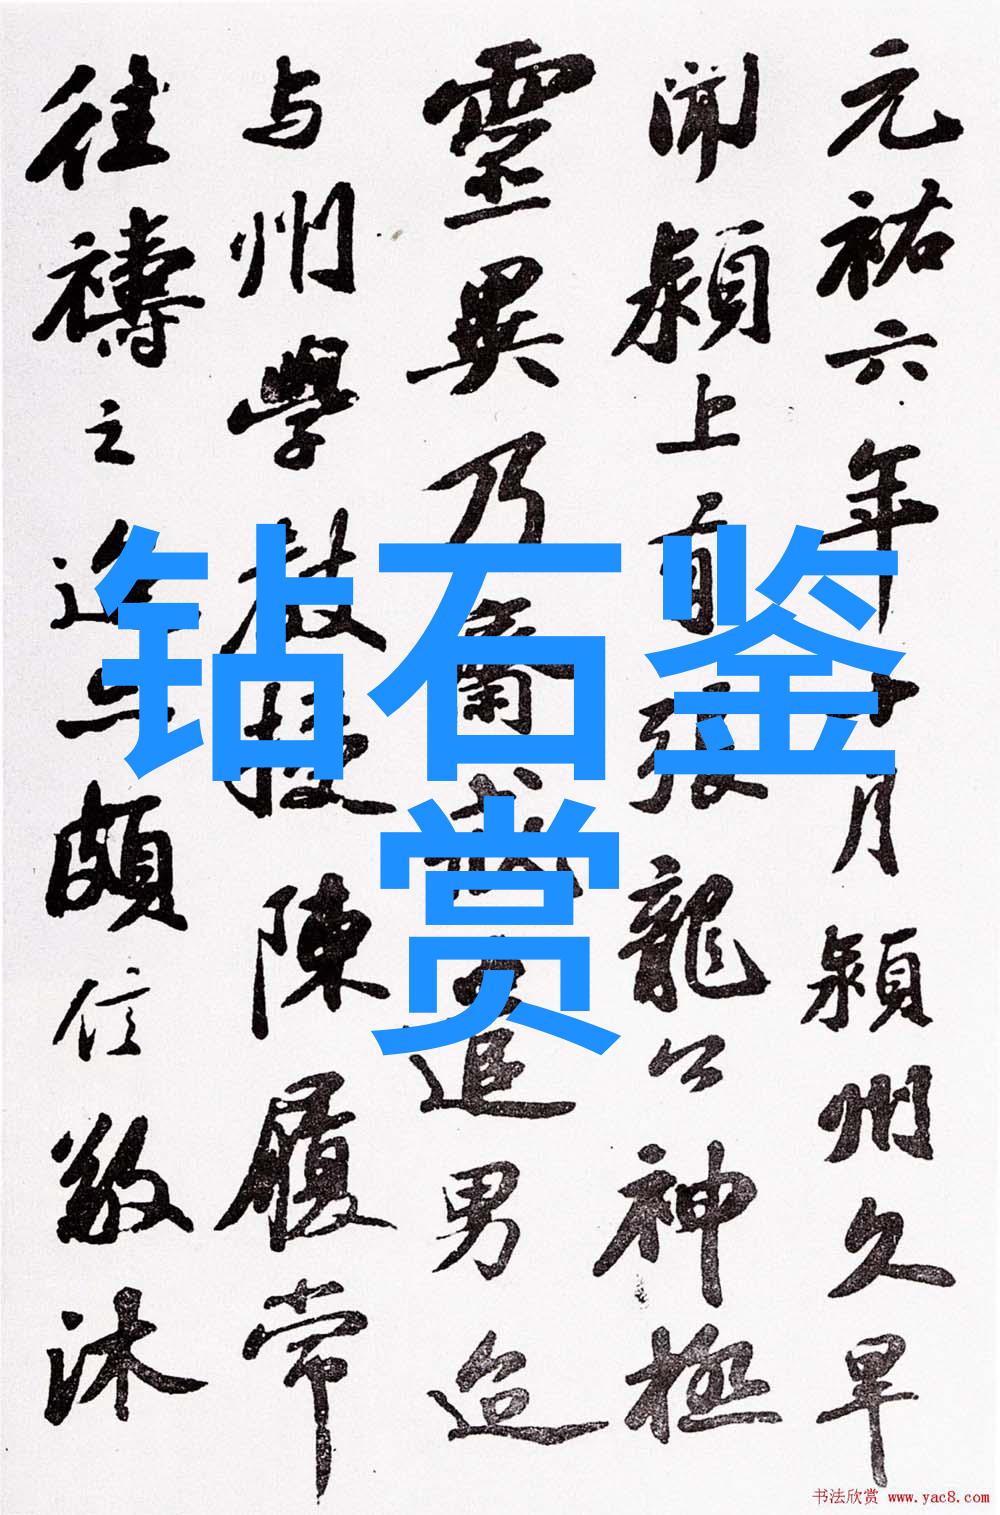 元祐六年十月潁州久旱
聞潁上有張龍公神極
靈異乃齋戒遣男迨
与州學教授陳履常
往禱之迨亦頗信敬沐
钻石鉴
赏
书法欣赏 www.yac8.com